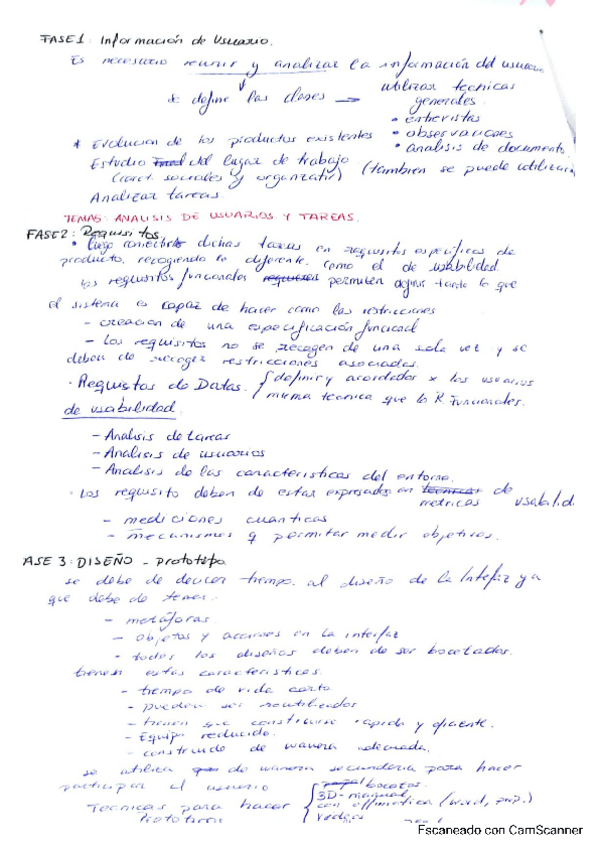 FASE 1: Información de Usuario.
Es necesario reunir y analizar la información del usuario
se define las clases → utilizar tecnicas
generales.
• entrevistas
* Evolucion de los productos existentes • observaciones
• analisis de documento
Estudio del lugar de trabajo (tambien se puede utilizar
(caract. sociales y organizativ)
Analizar tareas
TEMAS: ANALISIS DE USUARIOS Y TAREAS.
FASE 2: Requisitos.
• luego dichas tareas en requisitos especificos de
producto, recogiendo lo diferente. como el de usabilidad.
los requisitos funcionales permiten definir tanto lo que
el sistema es capaz de hacer como las restricciones
- creacion de una especificación funcional
- Los requisitos no se recogen de una sola vez y se
deben de recoger restricciones asociadas.
• Requistos de Datos. { definir y acordados x los usuarios
misma tecnica que lo R. Funcionales.
de usabilidad
- Analisis de tareas
- Analisis de usuarios
- Analisis de las caracteristicas del entorno.
• Los requisito deben de estar expresados en metricas de usabilid.
- mediciones cuanticas
- mecanismos q permitar medir objetivos.
ASE 3: DISEÑO - Prototipo
se debe de tiempo. al diseño de la Intefaz ya
que debe de tener.
- metáforas
- objetos y acciones en la interfaz
- todos los diseños deben de ser bocetados.
tienen estas caracteristicas.
- tiempo de vida corto
- pueden ser reutilizados
- tienen que construirse rapida y eficiente.
- Equipo reducido.
- construido de manera adecuada.
se utiliza de manera secundaria para hacer
participar al usuario
Tecnicas para hacer { bocetos.
Prototipos 3D-manual
con offimatica (word, pwp.)
videos
Escaneado con CamScanner